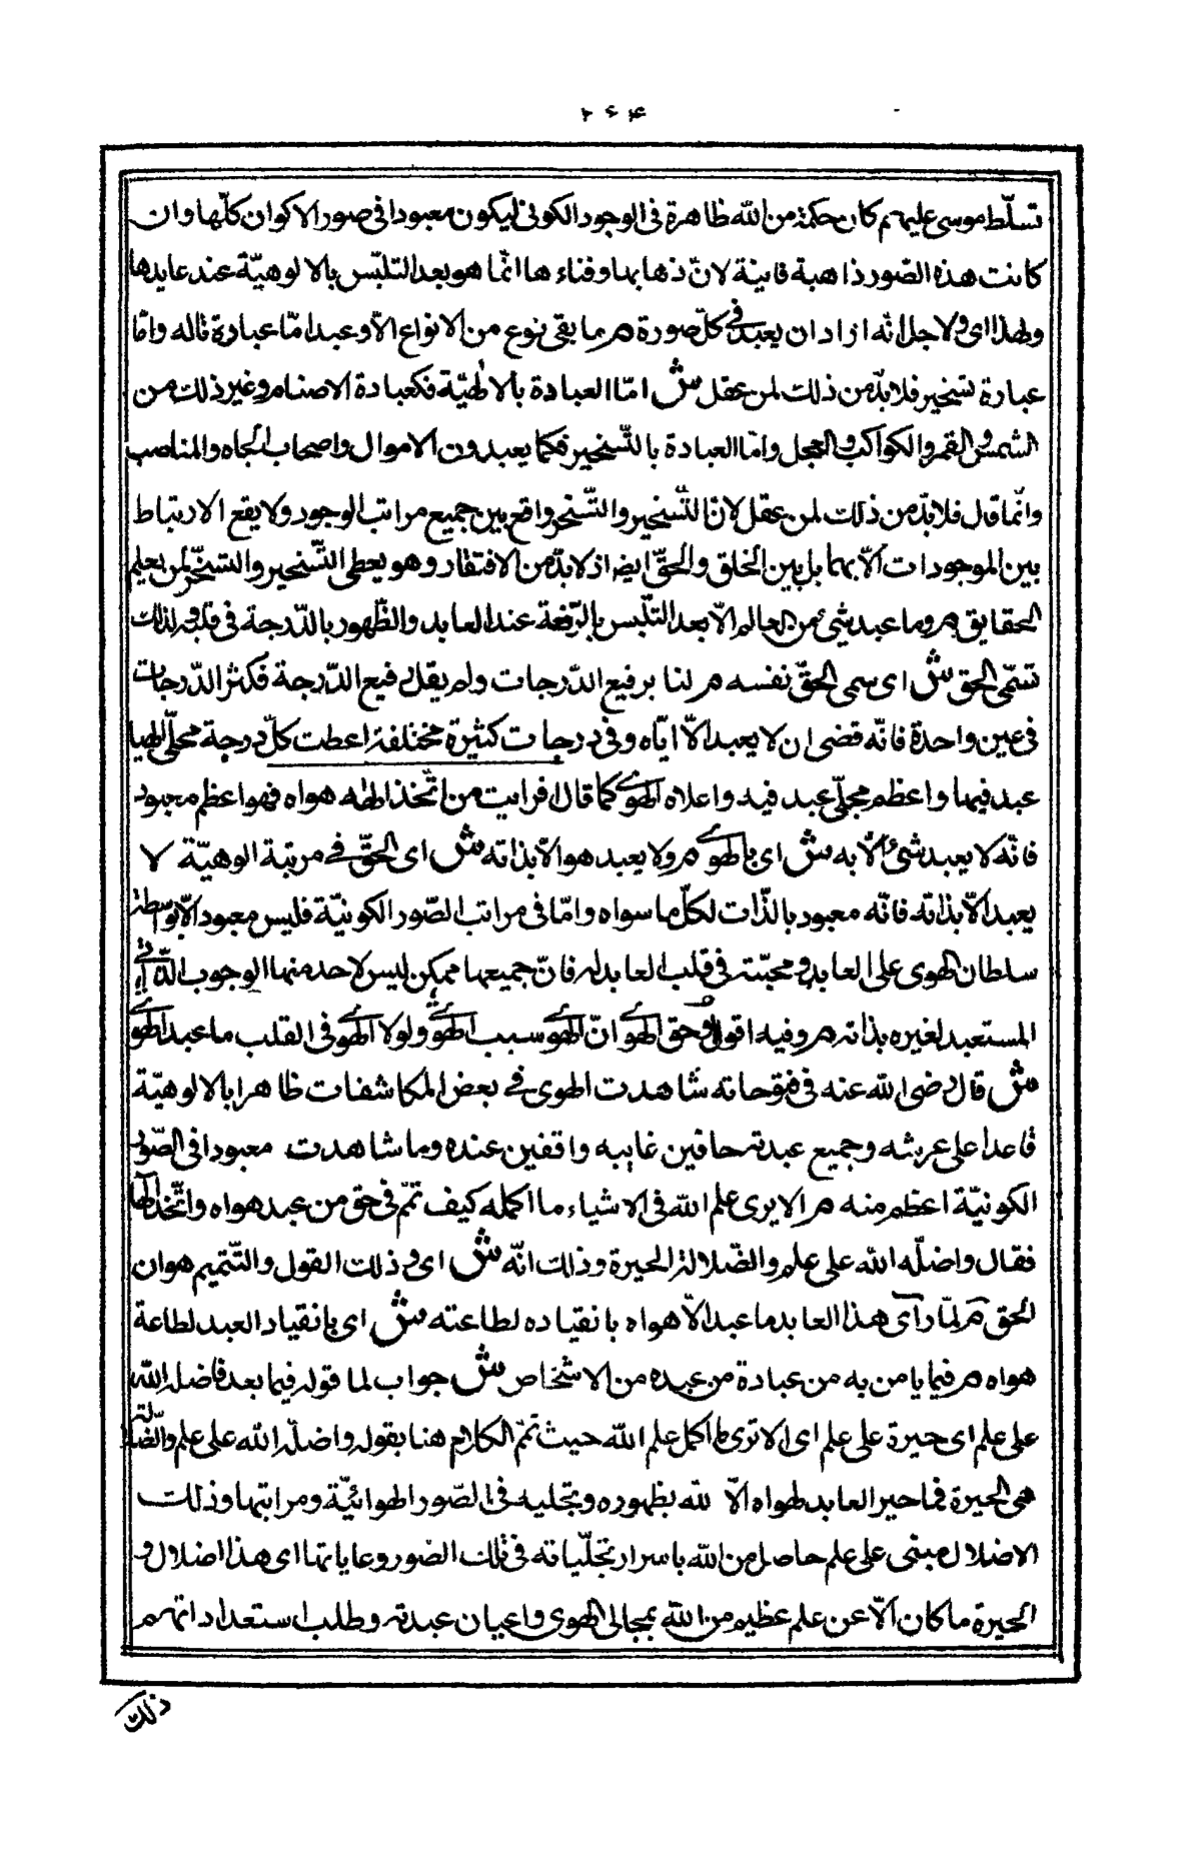 ۲۶۴
تسلّط موسى عليهم كان حكمة من الله ظاهرة فى الوجود الكونى ليكون معبودا فى صور الاكوان كلّها وان
كانت هذه الصّور ذاهبة فانية لانّ ذهابها وفناءها انّما هو بعد التلبّس بالالوهيّة عند عابدها
ولهذا اى ولاجل انّه اراد ان يعبد فى كلّ صورة م ما بقى نوع من الانواع الاّ وعبد امّا عبادة تاله وامّا
عبادة تسخير فلابدّ من ذلك لمن عقل ش امّا العبادة بالالهيّة فكعبادة الاصنام وغير ذلك من
الشمس والقمر والكواكب والعجل وامّا العبادة بالتّسخير فكما يعبدون الاموال واصحاب الجاه والمناصب
وانّما قال فلابدّ من ذلك لمن عقل لانّ التّسخير والتّسخّر واقع بين جميع مراتب الوجود ولا يقع الارتباط
بين الموجودات الاّ بهما بل بين الخلق والحقّ ايضا اذ لابدّ من الافتقار وهو يعطى التّسخير والتسخّر لمن يعلم
الحقايق م وما عبد شئ من العالم الاّ بعد التّلبّس بالرّفعة عند العابد والظّهور بالدّرجة فى قلبه ولذلك
تسمّى الحق ش اى سمى الحقّ نفسه م لنا برفيع الدّرجات ولم يقل رفيع الدّرجة فكثر الدّرجات
فى عين واحدة فانّه قضى ان لا يعبد الاّ ايّاه وفى درجات كثيرة مختلفة اعطت كلّ درجة مجلّى الهيا
عبد فيها واعظم مجلّى عبد فيه واعلاه الهوى كما قال افرايت من اتّخذ الهه هواه فهو اعظم معبود
فانّه لا يعبد شئ الاّ به ش اى بالهوى م ولا يعبد هو الاّ بذاته ش اى الحقّ فى مرتبة الوهيّة لا
يعبد الاّ بذاته فانّه معبود بالذّات لكلّ ما سواه وامّا فى مراتب الصّور الكونيّة فليس معبود الاّ بواسطة
سلطان الهوى على العابد ومحبّته فى قلب العابد له فانّ جميعها ممكن ليس لاحد منها الوجوب الذّاتى
المستعبد لغيره بذاته م وفيه اقول وحق الهوى انّ الهوى سبب الهوى ولولا الهوى فى القلب ما عبد الهوى
ش قال رضى الله عنه فى فتوحاته شاهدت الهوى فى بعض المكاشفات ظاهرا بالالوهيّة
قاعدا على عرشه وجميع عبدته حافين غايبه واقفين عنده وما شاهدت معبودا فى الصّور
الكونيّة اعظم منه م الا يرى علم الله فى الاشياء ما اكمله كيف تمّم فى حق من عبد هواه واتّخذه الها
فقال واضلّه الله على علم والضّلالة الحيرة وذلك انّه ش اى وذلك القول والتّتميم هو ان
الحق م لمّا رآى هذا العابد ما عبد الاّ هواه بانقياده لطاعته ش اى بانقياد العبد لطاعة
هواه م فيما يامن به من عبادة من عبده من الاشخاص ش جواب لما قوله فيما بعد فاضله الله
على علم اى حيرة على علم اى الا ترى ما اكمل علم الله حيث تمّم الكلام هنا بقوله واضلّه الله على علم والضّلالة
هى الحيرة فما حير العابد لهواه الاّ لله بظهوره وتجليه فى الصّور الهوائيّة ومراتبها وذلك
الاضلال مبنى على علم حاصل من الله باسرار تجلّياته فى تلك الصّور وغاياتها اى هذا اضلال و
الحيرة ما كان الاّ عن علم عظيم من الله بمجالى الهوى واعيان عبدته وطلب استعداداتهم
ذلك